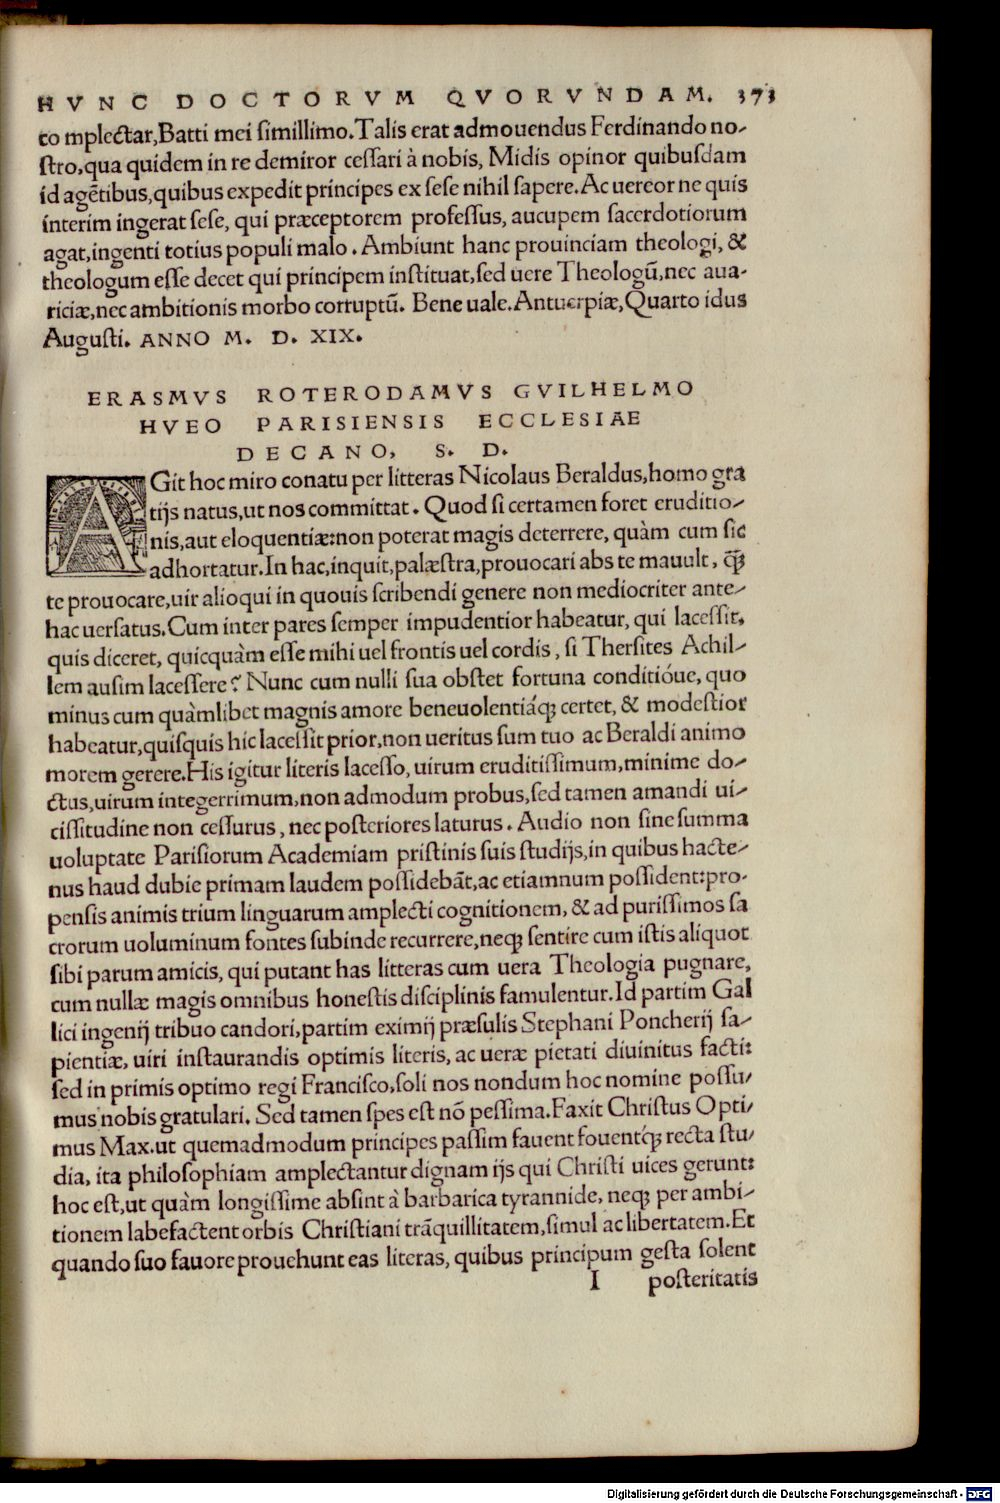 HVNC DOCTORVM QVORVNDAM. 373
co mplectar,Batti mei simillimo.Talis erat admouendus Ferdinando no-
stro,qua quidem in re demiror cessari à nobis, Midis opinor quibusdam
id agẽtibus,quibus expedit principes ex sese nihil sapere.Ac uereor ne quis
interim ingerat sese, qui præceptorem professus, aucupem sacerdotiorum
agat,ingenti totius populi malo. Ambiunt hanc prouinciam theologi, &
theologum esse decet qui principem instituat,sed uere Theologũ,nec aua-
riciæ,nec ambitionis morbo corruptũ. Bene uale.Antuerpiæ,Quarto idus
Augusti. ANNO M. D. XIX.
ERASMVS ROTERODAMVS GVILHELMO
HVEO PARISIENSIS ECCLESIAE
DECANO, S. D.
AGit hoc miro conatu per litteras Nicolaus Beraldus,homo gra
tijs natus,ut nos committat. Quod si certamen foret eruditio-
nis,aut eloquentiæ:non poterat magis deterrere, quàm cum sic
adhortatur.In hac,inquit,palæstra,prouocari abs te mauult, q̃ꝫ
te prouocare,uir alioqui in quouis scribendi genere non mediocriter ante-
hac uersatus.Cum inter pares semper impudentior habeatur, qui lacessit,
quis diceret, quicquàm esse mihi uel frontis uel cordis, si Thersites Achil-
lem ausim lacessere? Nunc cum nulli sua obstet fortuna conditióue, quo
minus cum quàmlibet magnis amore beneuolentiáqꝫ certet, & modestior
habeatur,quisquis hic lacessit prior,non ueritus sum tuo ac Beraldi animo
morem gerere.His igitur literis lacesso, uirum eruditissimum,minime do-
ctus,uirum integerrimum,non admodum probus,sed tamen amandi ui-
cissitudine non cessurus, nec posteriores laturus. Audio non sine summa
uoluptate Parisiorum Academiam pristinis suis studijs,in quibus hacte-
nus haud dubie primam laudem possidebãt,ac etiamnum possident:pro-
pensis animis trium linguarum amplecti cognitionem, & ad purissimos sa
crorum uoluminum fontes subinde recurrere,neqꝫ sentire cum istis aliquot
sibi parum amicis, qui putant has litteras cum uera Theologia pugnare,
cum nullæ magis omnibus honestis disciplinis famulentur.Id partim Gal
lici ingenij tribuo candori,partim eximij præsulis Stephani Poncherij sa-
pientiæ, uiri instaurandis optimis literis, ac ueræ pietati diuinitus facti:
sed in primis optimo regi Francisco,soli nos nondum hoc nomine possu-
mus nobis gratulari. Sed tamen spes est nõ pessima.Faxit Christus Opti-
mus Max.ut quemadmodum principes passim fauent fouentqꝫ́ recta stu-
dia, ita philosophiam amplectantur dignam ijs qui Christi uices gerunt:
hoc est,ut quàm longissime absint à barbarica tyrannide, neqꝫ per ambi-
tionem labefactent orbis Christiani trãquillitatem,simul ac libertatem.Et
quando suo fauore prouehunt eas literas, quibus principum gesta solent
I posteritatis
Digitalisierung gefördert durch die Deutsche Forschungsgemeinschaft - DFG